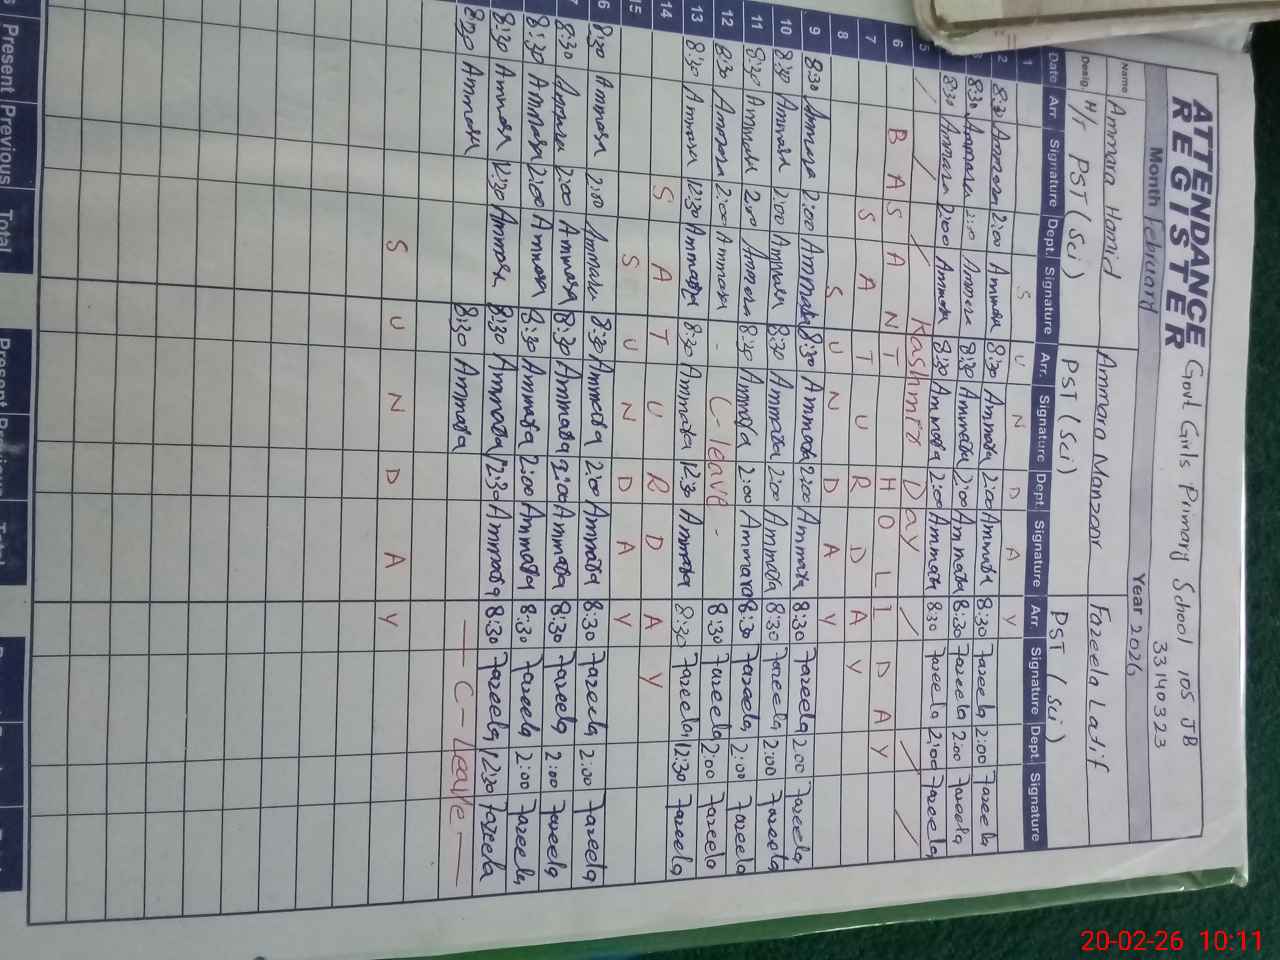 ATTENDANCE REGISTER
Govt Girls Primary School 105 JB
33140323
Month February Year 2026
Name Ammara Hamid Ammara Manzoor Fazeela Latif
Desig. H/T PST (Sci) PST (Sci) PST (Sci)
Date Arr. Signature Dept. Signature Arr. Signature Dept. Signature Arr. Signature Dept. Signature
1 S U N D A Y
2 8:30 Ammara 2:00 Ammara 8:30 Ammara 2:00 Ammara 8:30 Fazeela 2:00 Fazeela
8:30 Ammara 2:00 Ammara 8:30 Ammara 2:00 Ammara 8:30 Fazeela 2:00 Fazeela
8:30 Ammara 2:00 Ammara 8:30 Ammara 2:00 Ammara 8:30 Fazeela 2:00 Fazeela
5 Kashmir Day
6 B A S A N T H O L I D A Y
7 S A T U R D A Y
8 S U N D A Y
9 8:30 Ammara 2:00 Ammara 8:30 Ammara 2:00 Ammara 8:30 Fazeela 2:00 Fazeela
10 8:30 Ammara 2:00 Ammara 8:30 Ammara 2:00 Ammara 8:30 Fazeela 2:00 Fazeela
11 8:30 Ammara 2:00 Ammara 8:30 Ammara 2:00 Ammara 8:30 Fazeela 2:00 Fazeela
12 8:30 Ammara 2:00 Ammara - C-leave - 8:30 Fazeela 2:00 Fazeela
13 8:30 Ammara 12:30 Ammara 8:30 Ammara 12:30 Ammara 8:30 Fazeela 12:30 Fazeela
14 S A T U R D A Y
15 S U N D A Y
6 8:30 Ammara 2:00 Ammara 8:30 Ammara 2:00 Ammara 8:30 Fazeela 2:00 Fazeela
8:30 Ammara 2:00 Ammara 8:30 Ammara 2:00 Ammara 8:30 Fazeela 2:00 Fazeela
8:30 Ammara 2:00 Ammara 8:30 Ammara 2:00 Ammara 8:30 Fazeela 2:00 Fazeela
8:30 Ammara 12:30 Ammara 8:30 Ammara 12:30 Ammara 8:30 Fazeela 12:30 Fazeela
8:30 Ammara 8:30 Ammara — C-leave —
S U N D A Y
Present Previous Total Present Previous Total
20-02-26 10:11